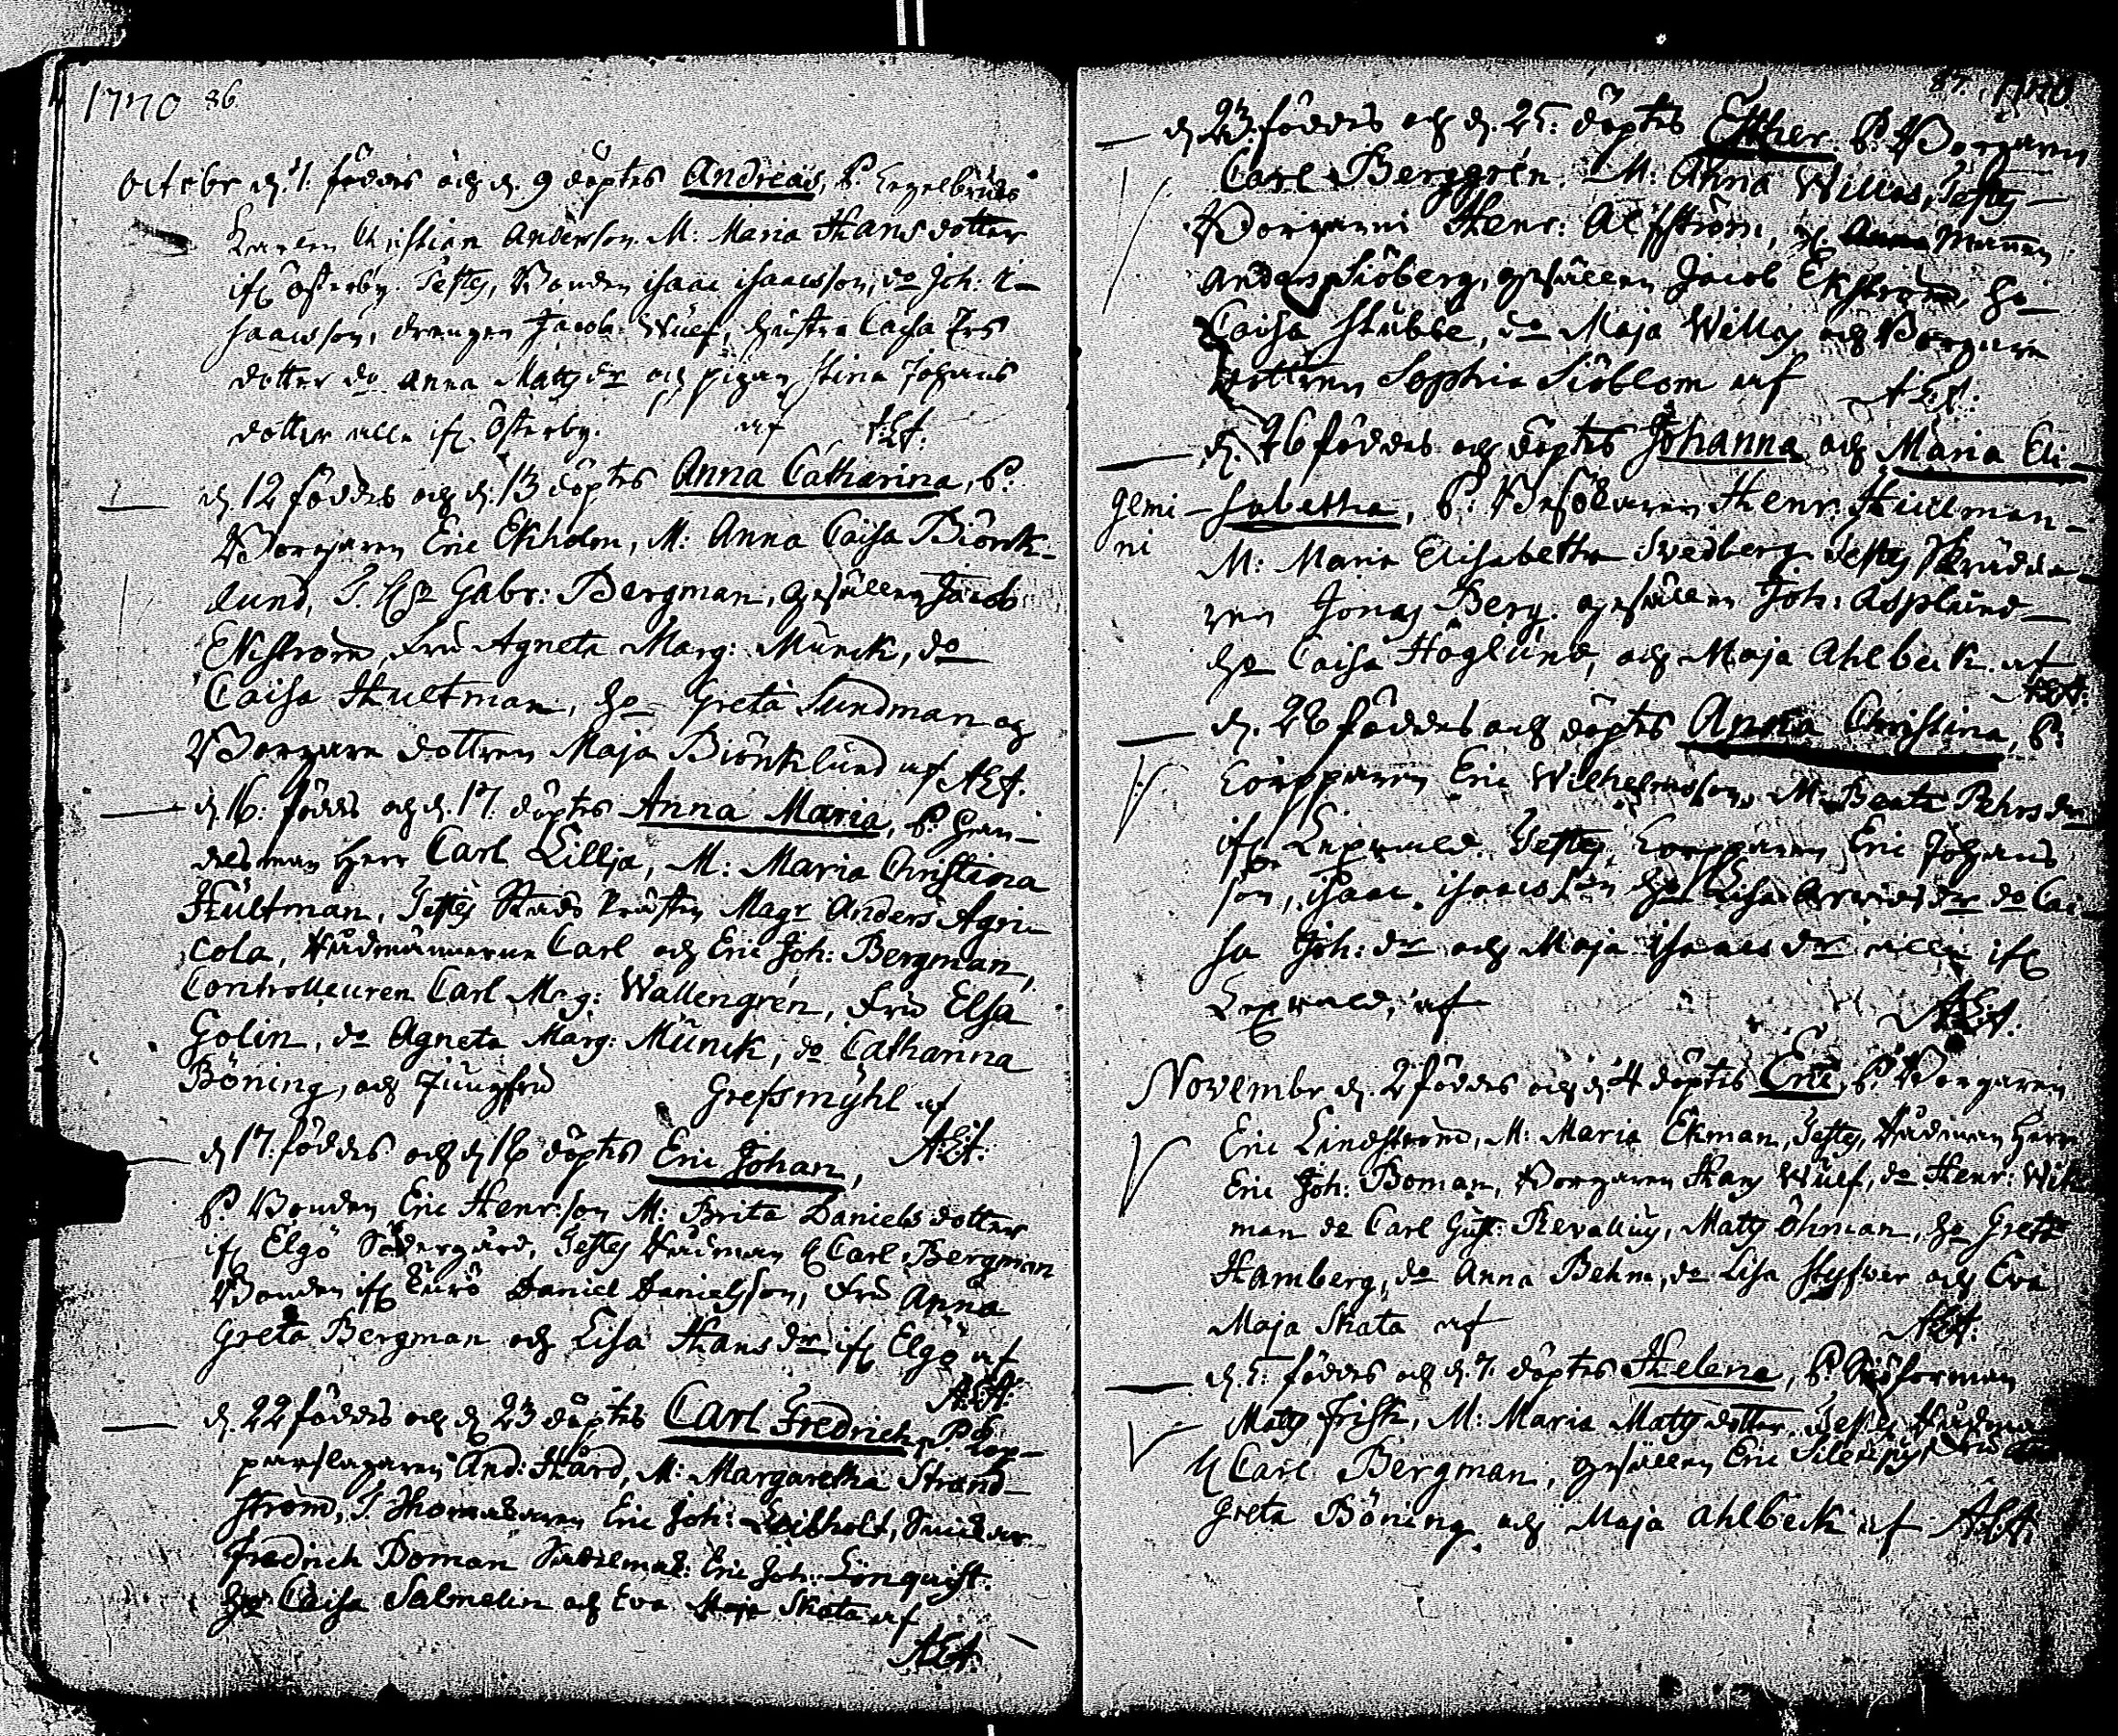 1770 86.
Octobr d. 7. föddes och d. 9 döptes Andreas, P. Engelbrects
Christian Anderson. M: Maria Hansdotter
ifr. Österby. Testes, Bonden isaac isaacsson, do Joh: i-
saacsson, drengen Jacob Wulf, hustro Caisa Ers
dotter do Anna Matts dr och pigan Stina Johans
dotter alle ifr. Österby. af A.E.A.
d. 12 föddes och d. 13 döptes Anna Catharina, P.
Borgaren Eric Ekholm, M: Anna Caisa Biörck-
lund, T. Gabr: Bergman, gesällen Jacob
Ekström, Fru Agneta Marg: Munck, do
Caisa Hultman, Greta Sundman och
Borgare dottren Maja Biörklund af A.E.A.
d. 16. föddes och d. 17. döptes Anna Maria, P. Han-
delsman Herr Carl Lillja, M: Maria Christina
Hultman, Testes Magr Anders Agri-
cola, Rådmännerne Carl och Eric Joh: Bergman,
Controlleuren Carl Mag: Wallengrén, Fru Elsa
Golin, do Agneta Marg: Munck, do Catharina
Böning, och Jungfru Grefsmÿhl af
A.E.A.
d. 17. föddes och d. 18 döptes Eric Johan,
P. Bonden Eric Henrsson M: Brita Daniels dotter
ifr. Elgö Södergård, Testes Rådman H Carl Bergman
Bonden ifr. Daniel Danielsson, Fru Anna
Greta Bergman och Lisa Hans dr ifr. Elgö af
A.E.A.
d. 22 föddes och d. 23 döptes Carl Fredrich, P. Cop-
parslagaren And: Hård, M: Margaretha Strand-
ström, T. Eric Joh:
Fredrich Boman Eric Joh: Lönquist.
Caisa Salmelin och Eva Maja Skata af
A.E.A.
87. 1770
d. 23. föddes och d. 25. döptes Esther. P. Borgaren
Carl Berggrén. M: Anna Willas, Testes
Borgaren Henr: Alfström,
Anders Siöberg, gesällen Jacob Ekström,
Caisa Stubbe, do Maja Willas och Borgare
dottren Sophia Siöblom af A.E.A.
d. 26 föddes och döptes Johanna och Maria Eli-
Gemi- sabetha, P. Besökaren Henr: Hultman
ni
M: Maria Elisabetha Svedberg. Testes Skrädda-
ren Jonas Berg. gesällen Joh: Asplund
Caisa Höglund, och Maja Ahlbeck. af
A.E.A.
d. 28 föddes och döptes Anna Christina, P.
Eric Wilhelmsson, M: Beata Pehrs dr
ifr. Testes Eric Johans
son, isaac isaacsson Lisa Arvids dr do Cai-
sa Joh: dr och Maja isaacs dr alle ifr.
af A.E.A.
Novembr d. 2 föddes och d. 4 döptes Eric, P. Borgaren
Eric Lindström, M: Maria Ekman, Testes, Rådman Herr
Eric Joh: Boman, Borgaren Hans Wulf, do Henr: Wik-
man do Carl Gust: Revalius, Matts Öhman, Greta
Hamberg, do Anna Behm, do Lisa och Eva
Maja Skata af A.E.A.
d. 5. föddes och d. 7. döptes Helena, P.
Matts Frisk, M: Maria Matts dotter. Testes Rådman
H Carl Bergman, gesällen Eric Fru
Greta Böning och Maja Ahlbeck af A.E.A.